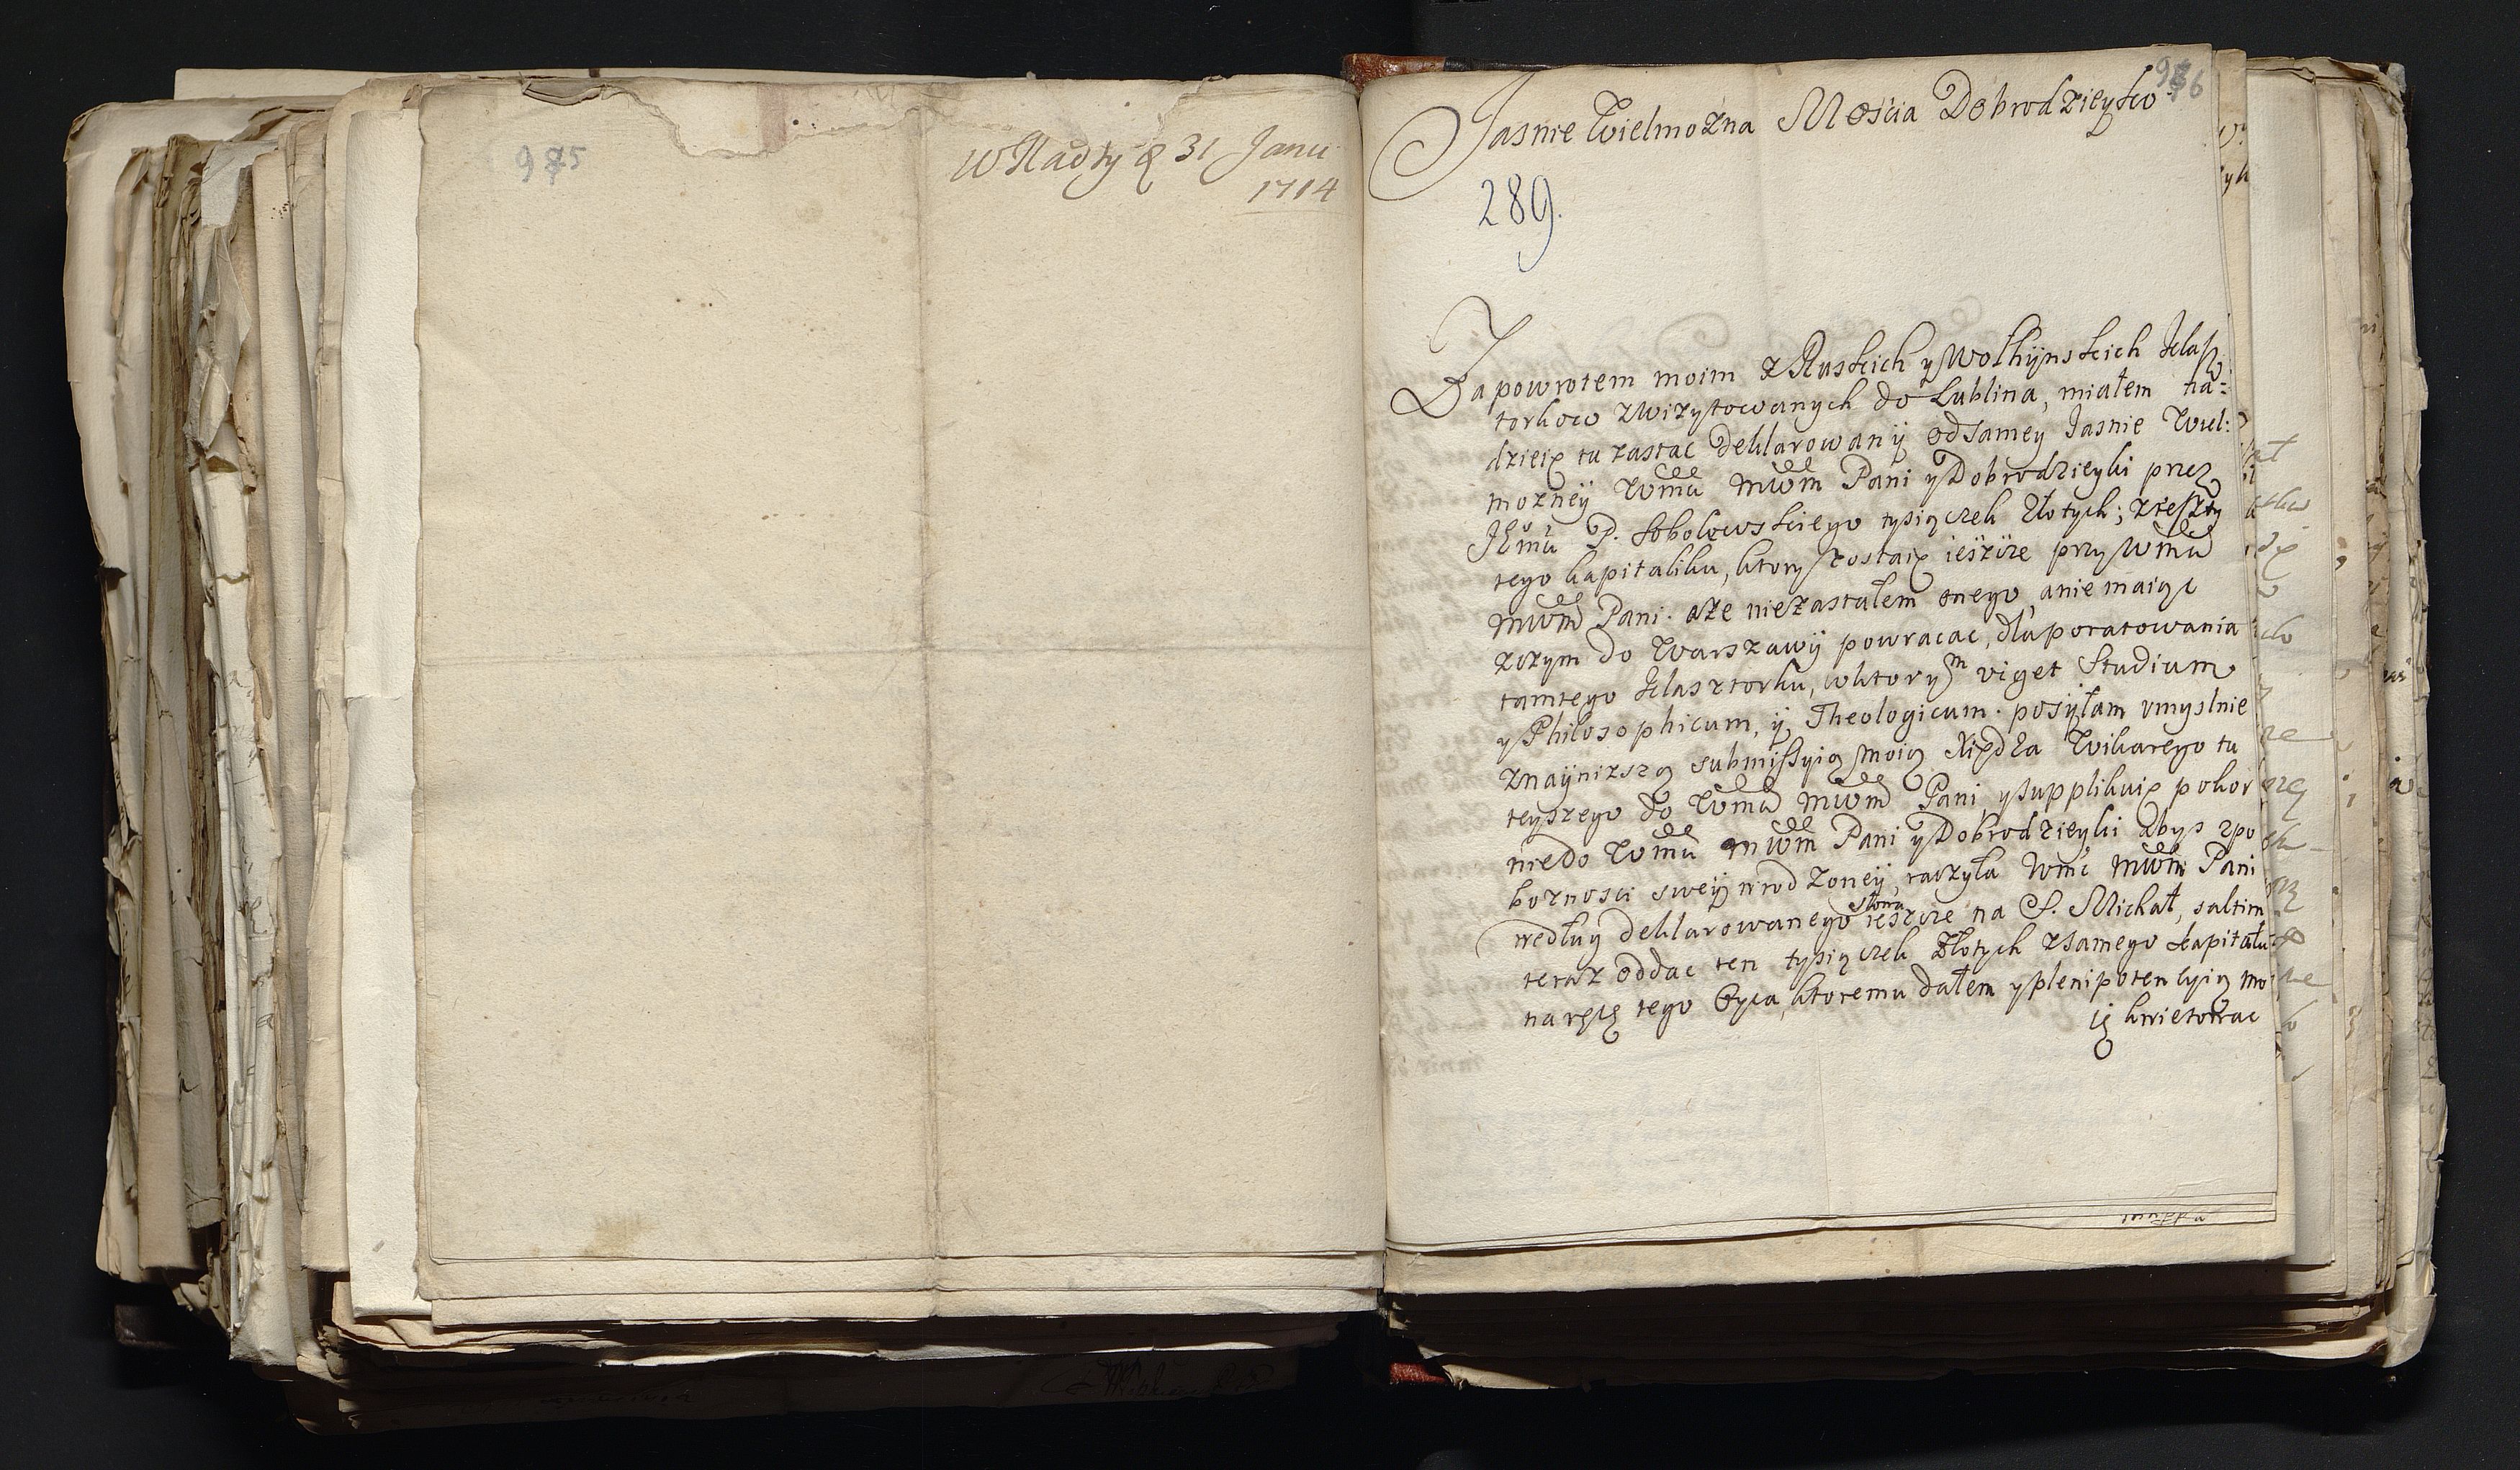 975
W Nadzy d 31 Janu
1714
976
Jasnie Wielmozna Mościa Dobrodzieyko
289.
Za powrotem moim z Ruskich y Wołhÿnskich Klasz
torkow zwizytowanych do Lublina, miałem na=
dzieię tu zastac deklarowanÿ od samey Jasnie Wiel:
moznëy Wmm mwm Pani y Dobrodzieyki przez
Jẽmũ P. Sobolewskiego tysiączek Złotych; z reszty
tego kapitaliku, ktory zostaię ieszcze przy Wmm
mwm Pani. aże niezastałem onego, anie maiąc
zczym do Warszawÿ powracac, dla poratowania
tamtego Klasztorku, wktorym viget Studium
y Philosophicum, ÿ Theologicum. posÿłam vmyslnie
znaÿnizszą submissyią moią Xiędza Wikarego tu
teyszego do Wmm mwm Pani y supplikuię pokor
nie do Wmm mwm Pani y Dobrodzieyki abys zpo
boznosci sweÿ wrodzoneÿ, raczyła Wmc mwm Pani
według deklarowanego słowa ieszcze na S. Michał, saltim
teraz oddac ten tysiączek Złotych zsamego kapitału
na ręcę tego Oyca, ktoremu dałem y plenipotencyią mo
ią kwietowac